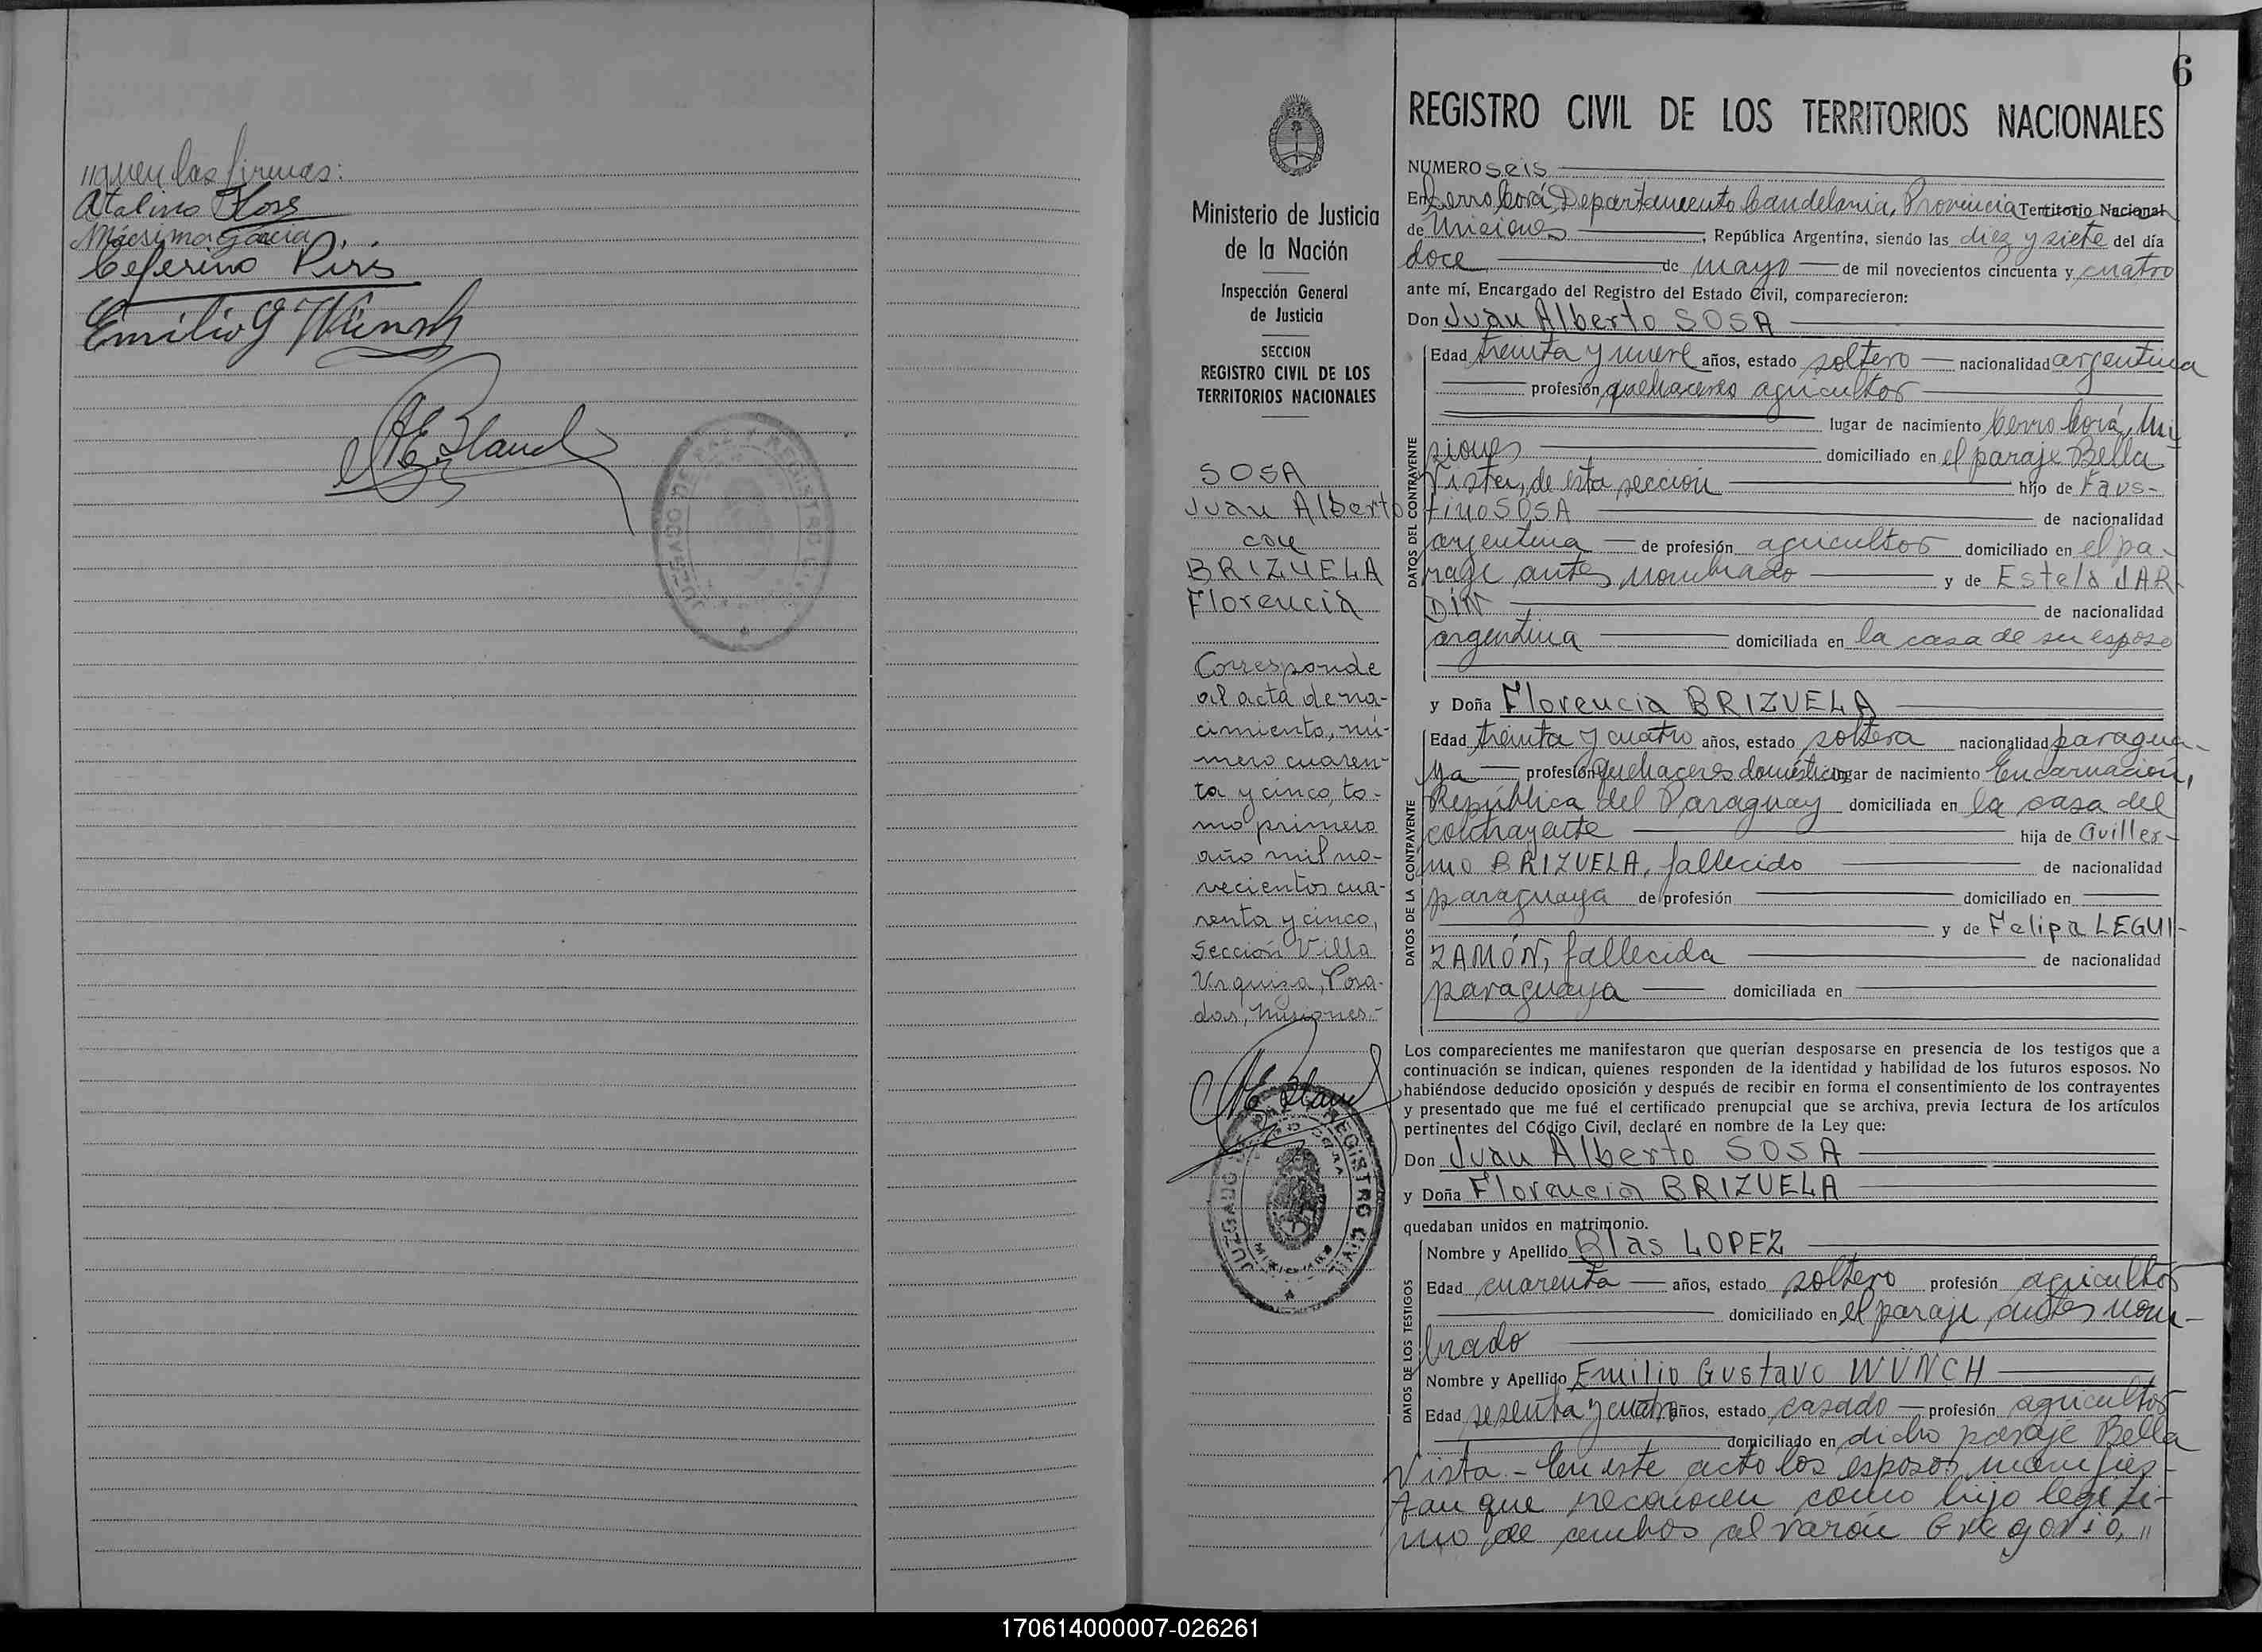 siguen las firmas:
Atalino Kloss
Mácsima Garcia
Ceferino Piris
Emilio G Wünsch
JUZGADO DE PAZ Y REGISTRO CIVIL
6
Ministerio de Justicia
de la Nación
Inspección General
de Justicia
SECCION
REGISTRO CIVIL DE LOS
TERRITORIOS NACIONALES
SOSA
Juan Alberto
con
BRIZUELA
Florencia
Corresponde
al acta de na-
cimiento, nú-
mero cuaren-
ta y cinco, to-
mo primero
año mil no-
vecientos cua-
renta y cinco,
Sección Villa
Urquiza, Posa-
das, Misiones.-
JUZGADO DE PAZ Y REGISTRO CIVIL
CERRO CORA
MISIONES
REGISTRO CIVIL DE LOS TERRITORIOS NACIONALES
NUMERO seis
En Cerro Corá, Departamento Candelaria, Provincia Territorio Nacional
de Misiones, República Argentina, siendo las diez y siete del día
doce de mayo de mil novecientos cincuenta y cuatro
ante mí, Encargado del Registro del Estado Civil, comparecieron:
Don Juan Alberto SOSA
DATOS DEL CONTRAYENTE
Edad treinta y nueve años, estado soltero nacionalidad argentina
profesión quehaceres agricultor
lugar de nacimiento Cerro Corá, Mi
siones domiciliado en el paraje Bella
Vista, de esta sección hijo de Faus-
tino SOSA de nacionalidad
argentina de profesión agricultor domiciliado en el pa-
raje antes nombrado y de Estela JAR-
DIN de nacionalidad
argentina domiciliada en la casa de su esposo
y Doña Florencia BRIZUELA
DATOS DE LA CONTRAYENTE
Edad treinta y cuatro años, estado soltera nacionalidad paragua-
ya profesión quehaceres domésticos lugar de nacimiento Encarnación,
República del Paraguay domiciliada en la casa del
contrayente hija de Guiller-
mo BRIZUELA, fallecido de nacionalidad
paraguaya de profesión domiciliado en
y de Felipa LEGUI-
ZAMÓN, fallecida de nacionalidad
paraguaya domiciliada en
Los comparecientes me manifestaron que querían desposarse en presencia de los testigos que a
continuación se indican, quienes responden de la identidad y habilidad de los futuros esposos. No
habiéndose deducido oposición y después de recibir en forma el consentimiento de los contrayentes
y presentado que me fué el certificado prenupcial que se archiva, previa lectura de los artículos
pertinentes del Código Civil, declaré en nombre de la Ley que:
Don Juan Alberto SOSA
y Doña Florencia BRIZUELA
quedaban unidos en matrimonio.
DATOS DE LOS TESTIGOS
Nombre y Apellido Blas LOPEZ
Edad cuarenta años, estado soltero profesión agricultor
domiciliado en el paraje antes nom-
brado
Nombre y Apellido Emilio Gustavo WÜNCH
Edad sesenta y cuatro años, estado casado profesión agricultor
domiciliado en dicho paraje Bella
Vista.- En este acto los esposos manifies-
tan que reconocen como hijo legíti-
mo de ambos al varón Gregorio, "
170614000007-026261